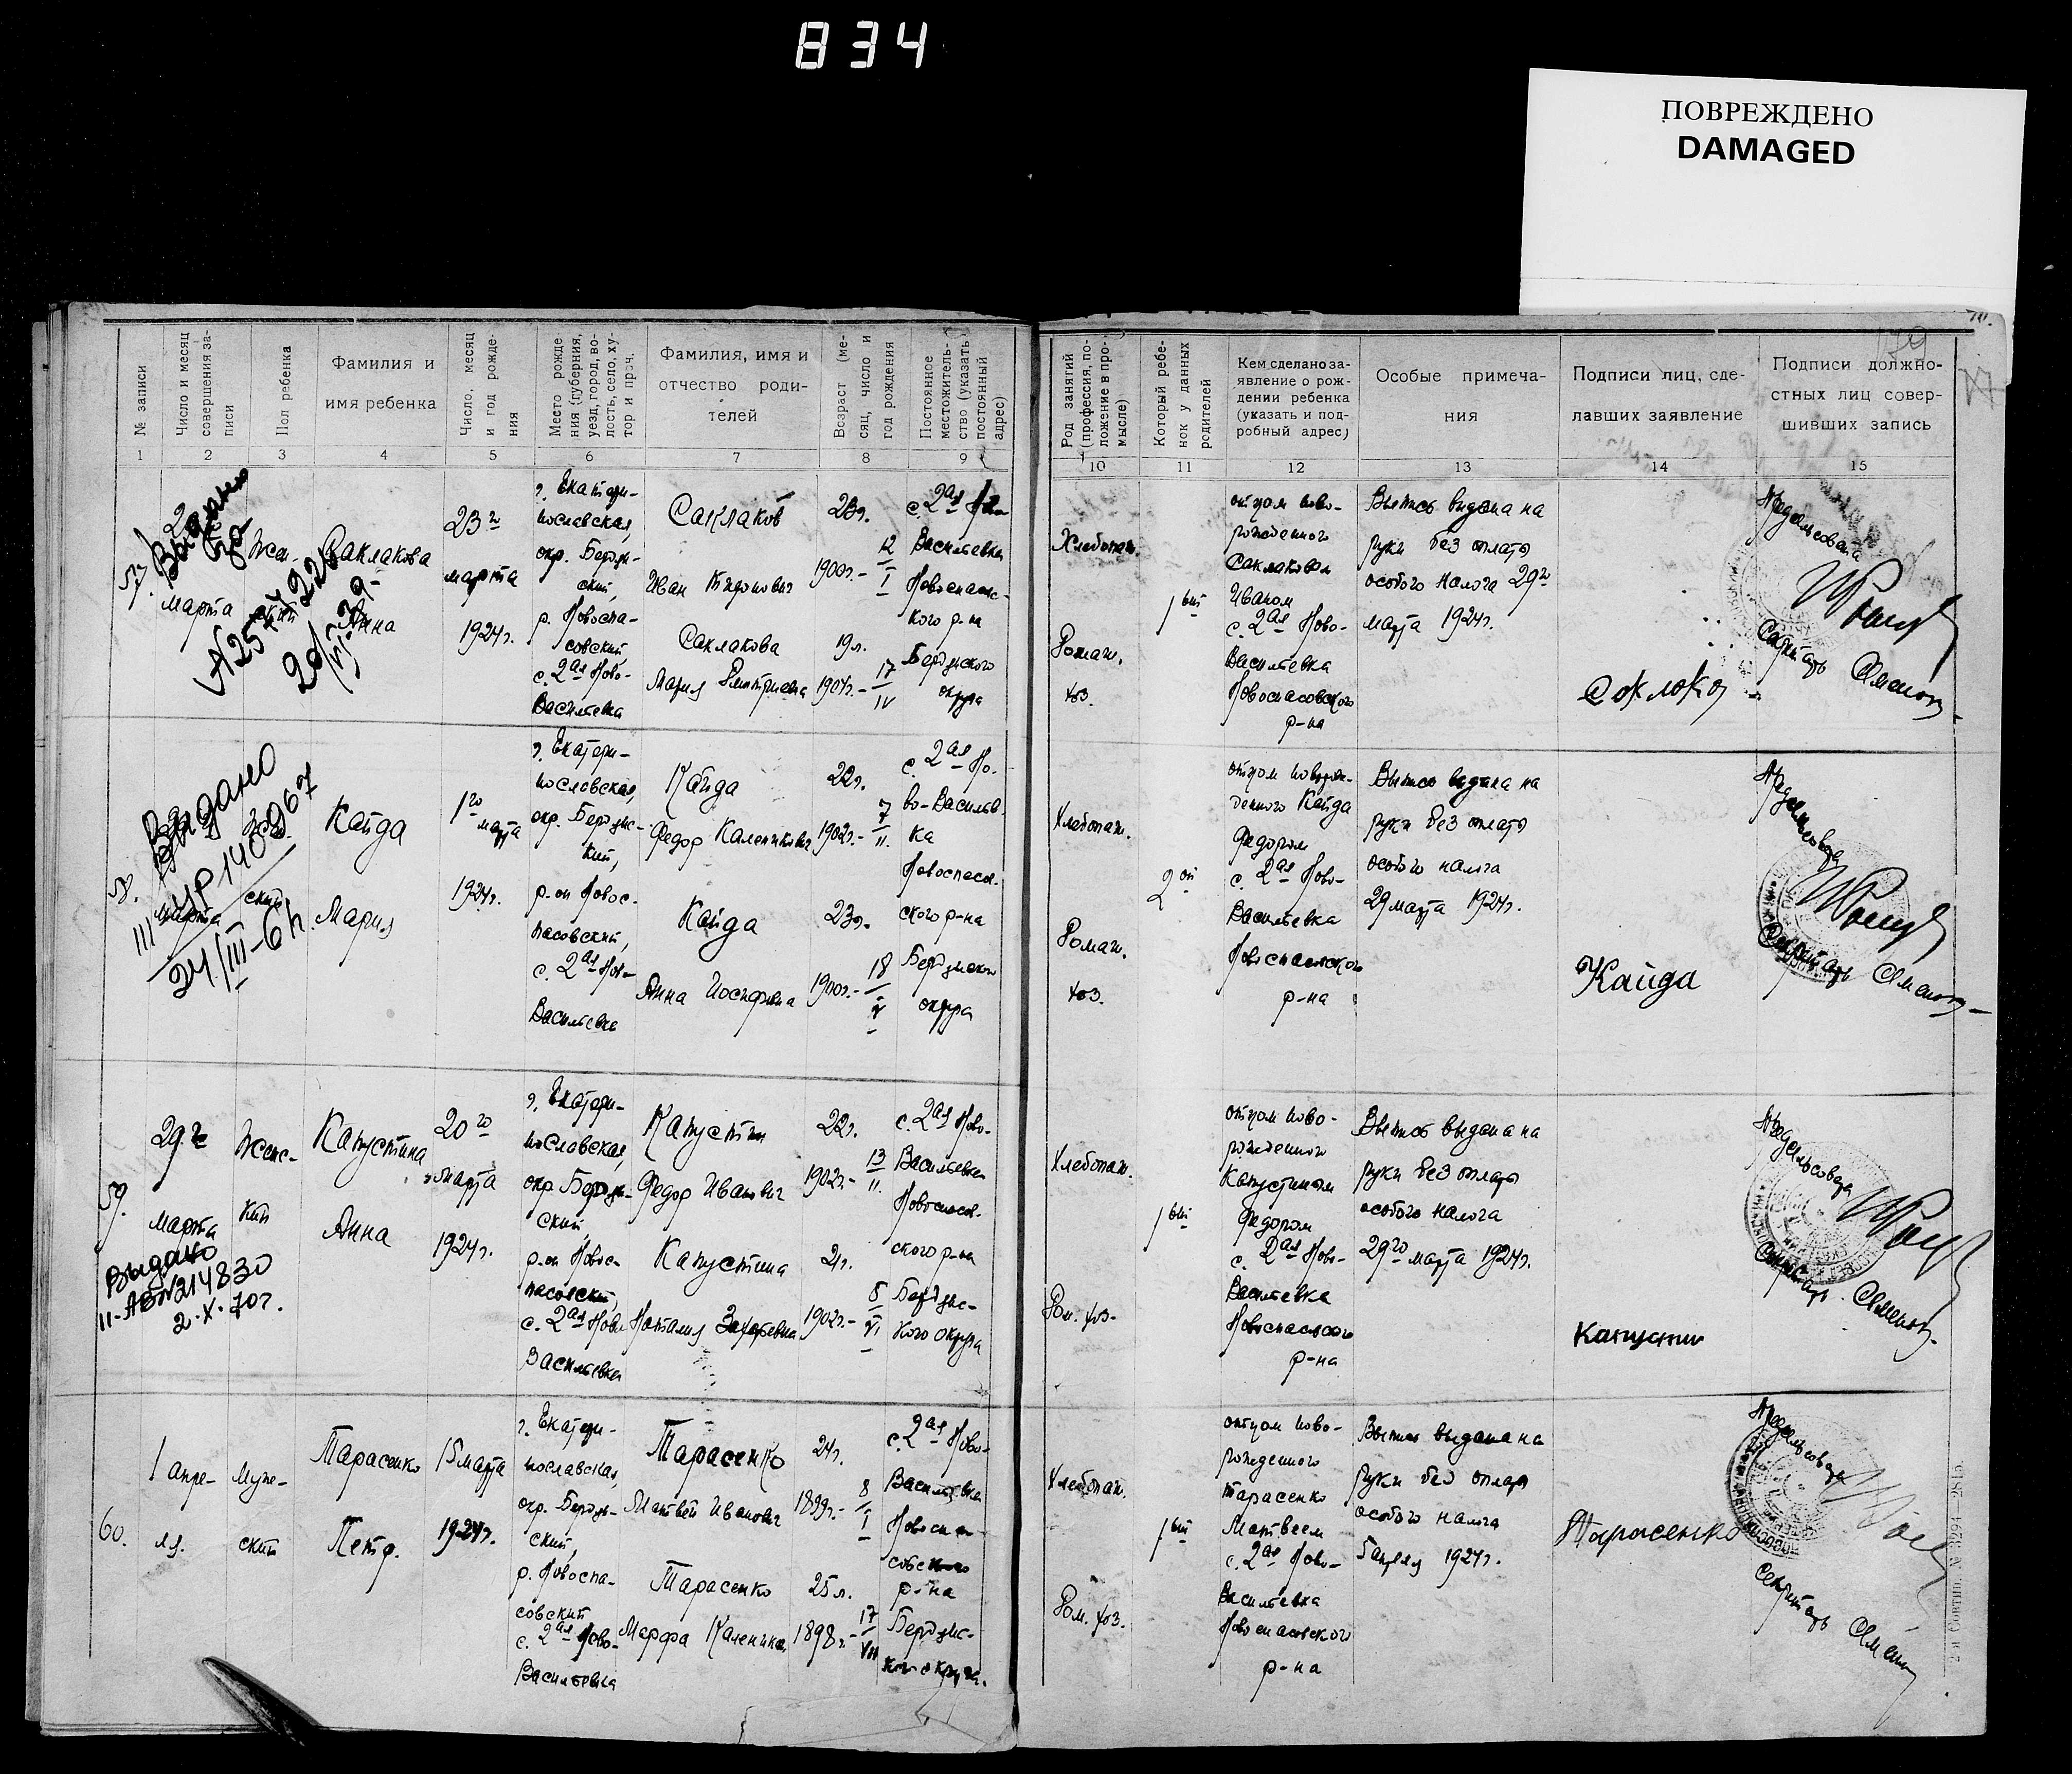 834
ПОВРЕЖДЕНО
DAMAGED
№ записи
Число и месяц совершения за-
писи
Пол ребенка
Фамилия и
имя ребенка
Число, месяц
и год рожде-
ния
Место рожде
ния (губерния,
уезд, город, во-
лость, село, ху-
тор и проч.
Фамилия, имя и
отчество роди-
телей
Возраст (ме-
сяц, число и
год рождения
Постоянное
местожитель-
ство (указать
постоянный
адрес)
Род занятий
(профессия, по-
ложение в про-
мысле)
Который ребе-
нок у данных
родителей
Кем сделано за-
явление о рож-
дении ребенка
(указать и под-
робный адрес)
Особые примеча-
ния
Подписи лиц, сде-
лавших заявление
Подписи должно-
стных лиц совер-
шивших запись
1 2 3 4 5 6 7 8 9 10 11 12 13 14 15
марта
Жен-
ский
Саклакова
Анна
23го
марта
1924г.
г. Екатери-
нославская,
окр. Бердян-
ский,
р. Новоспа-
совский
с. 2ая Ново-
Васильевка
Саклаков
Иван
Саклакова
Мария Дмитриевна
23г.
1900г. - 12/I
19л.
1904г. - 17/IV
с. 2ая Но-
Васильевка
Новоспасовс-
кого р-на
Бердянского
округа
Хлебопаш.
Домаш.
хоз.
1ый
отцом ново-
рожденного
Саклаковым
Иваном
с. 2ая Ново-
Васильевка
Новоспасовского
р-на
Выпись выдана на
руки без оплаты
особого налога 29го
марта 1924г.
Предсельсовета
Секретарь
58.
Выдано
24/III-61г.
марта
ский
Кайда
Мария
1го
марта
1924г.
г. Екатери-
нославская,
окр. Бердянс-
кий,
р-он Новос-
пасовский,
с. 2ая Ново-
Васильевка
Кайда
Федор Каленикович
Кайда
Анна Иосифовна
22г.
1902г. - 7/II.
23г.
1900г. - 18/V
с. 2ая Но-
во-Васильев-
ка
Новоспасов-
ского р-на
Бердянского
округа
Хлебопаш.
Домаш.
хоз.
2ой
отцом новорож-
денного Кайда
Федором
с. 2ая Ново-
Васильевка
Новоспасовского
р-на
Выпись выдана на
руки без оплаты
особого налога
29 марта 1924г.
Кайда
Предсельсовета
Секретарь
59.
29го
марта
Выдано
II-АБ №214830
2.X.70г.
Женс-
кий
Капустина
Анна
20го
марта
1924г.
г. Екатери-
нославская,
окр. Бердян-
ский,
р-он Новос-
пасовский
с. 2ая Ново
Васильевка
Капустин
Федор Иванович
Капустина
Наталия Захарьевна
22г.
1902г. - 13/II.
21г.
1902г. - 8/VI
с. 2ая Ново-
Васильевка
Новоспасов-
ского р-на
Бердянс-
кого округа
Хлебопаш.
Дом. хоз.
1ый
отцом ново-
рожденного
Капустиным
Федором
с. 2ая Ново-
Васильевка
Новоспасовского
р-на
Выпись выдана на
руки без оплаты
особого налога
29го марта 1924г.
Капустин
Предсельсовета
Секретарь
60.
1 апре-
ля.
Муже-
ский
Тарасенко
Петр.
15 марта
1924г.
г. Екатери-
нославская,
окр. Бердян-
ский,
р. Новоспа-
совский
с. 2ая Ново-
Васильевка
Тарасенко
Матвей Иванович
Тарасенко
Марфа
24г.
1899г. - 8/I
25л.
1898г. - 17/VII
с. 2ая Ново-
Васильевка
Новоспа-
совского
р-на
Бердянс-
кого округа.
Хлебопаш.
Дом. хоз.
1ый
отцом ново-
рожденного
Тарасенко
Матвеем
с. 2ая Ново-
Васильевка
Новоспасовского
р-на
Выпись выдана на
руки без оплаты
особого налога
апреля 1924г.
Тарасенко
Предсельсовета
Секретарь